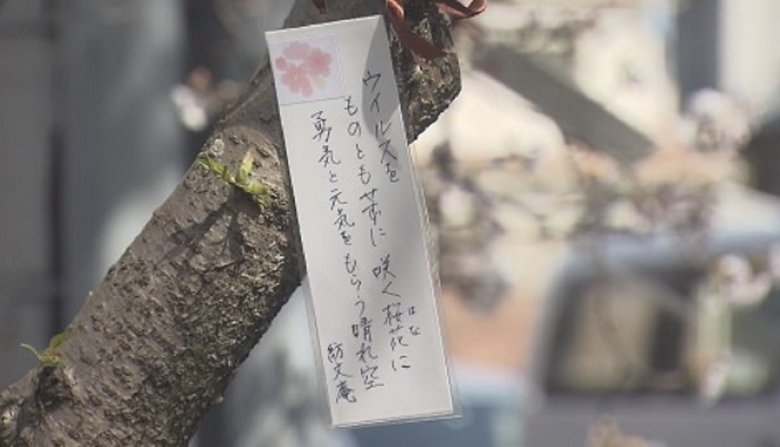 ウイルスを
ものともせずに咲く桜花に
はな
勇気と元気をもらう晴れ空
紡文庵